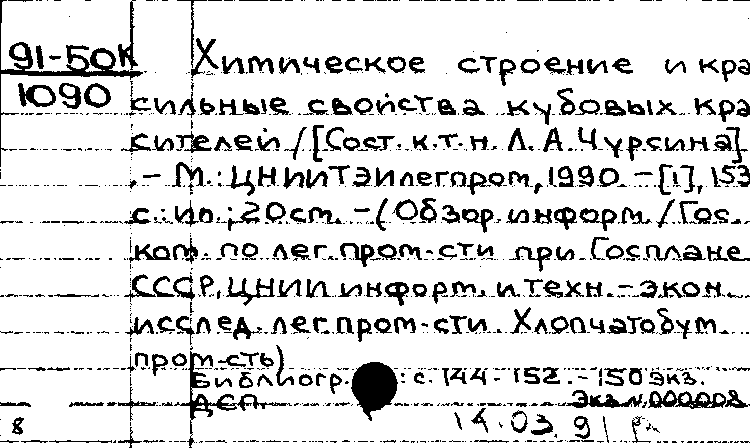 91-50К Химическое строение и кра
1090 сильные свойства кубовых кра
сителей / [Сост. к.т.н. Л. А. Чурсина]
. - М.: ЦНИИТЭИлегпром, 1990. - [1], 153
с.: ил.; 20 см. - (Обзор. информ. / Гос.
ком. по лег. пром-сти при Госплане
СССР, ЦНИИ информ. и техн. - экон.
исслед. лег. пром-сти. Хлопчатобум.
пром-сть)
Библиогр. : с. 144 - 152. - 150 экз.
ДСП. Экз. N 000008
8 14.03.91